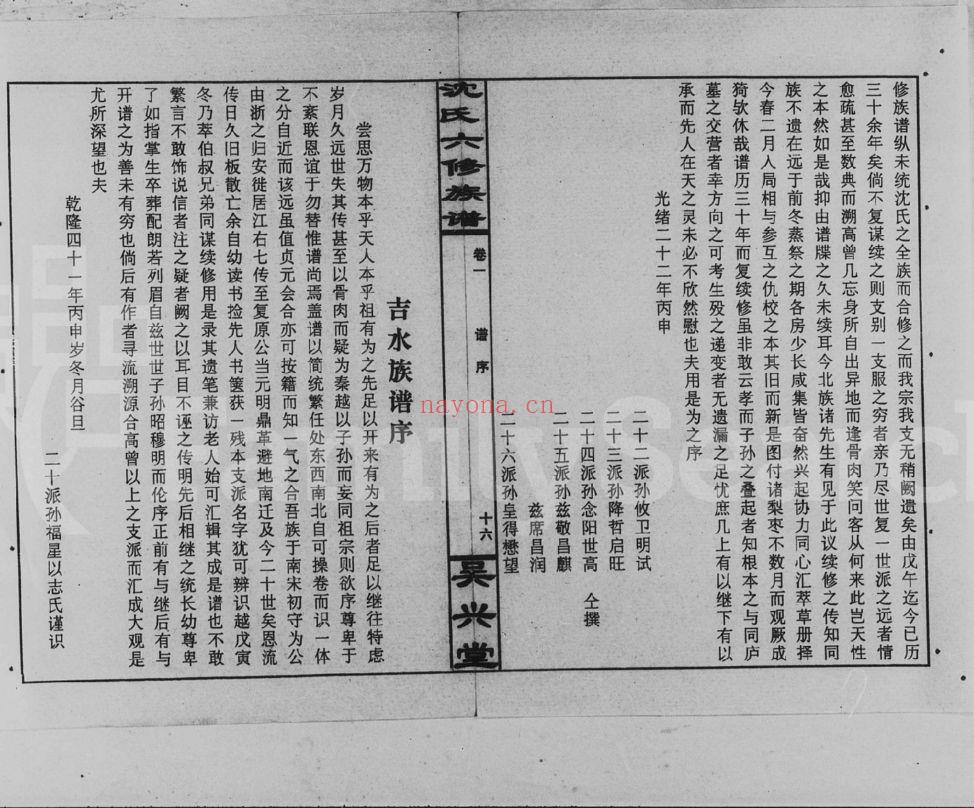 修族谱纵未统沈氏之全族而合修之而我宗我支无稍阙遗矣由戊午迄今已历
三十余年矣倘不复谋续之则支别一支服之穷者亲乃尽世复一世派之远者情
愈疏甚至数典而溯高曾几忘身所自出异地而逢骨肉笑问客从何来此岂天性
之本然如是哉抑由谱牒之久未续耳今北族诸先生有见于此议续修之传知同
族不遗在远于前冬蒸祭之期各房少长咸集皆奋然兴起协力同心汇萃草册择
今春二月人局相与参互之仇校之本其旧而新是图付诸梨枣不数月而观厥成
猗欤休哉谱历三十年而复续修虽非敢云孝而子孙之叠起者知根本之与同庐
墓之交营者幸方向之可考生殁之递变者无遗漏之足忧庶几上有以继下有以
承而先人在天之灵未必不欣然慰也夫用是为之序
光绪二十二年丙申
二十二派孙攸卫明试
二十三派孙降哲启旺
二十四派孙念阳世高 仝撰
二十五派孙兹敬昌麒
兹席昌润
二十六派孙皇得懋望
沈氏六修族谱
卷一
谱序
十六
吴兴堂
吉水族谱序
尝思万物本乎天人本乎祖有为之先足以开来有为之后者足以继往特虑
岁月久远世失其传甚至以骨肉而疑为秦越以子孙而妄同祖宗则欲序尊卑于
不紊联恩谊于勿替惟谱尚焉盖谱以简统繁任处东西南北自可操卷而识一体
之分自近而该远虽值贞元会合亦可按籍而知一气之合吾族于南宋初守为公
由浙之归安徙居江右七传至复原公当元明鼎革避地南迁及今二十世矣恩流
传日久旧板散亡余自幼读书捡先人书箧获一残本支派名字犹可辨识越戊寅
冬乃萃伯叔兄弟同谋续修用是录其遗笔兼访老人始可汇辑其成是谱也不敢
繁言不敢饰说信者注之疑者阙之以耳目不诬之传明先后相继之统长幼尊卑
了如指掌生卒葬配朗若列眉自兹世世子孙昭穆明而伦序正前有与继后有与
开谱之为善未有穷也倘后有作者寻流溯源合高曾以上之支派而汇成大观是
尤所深望也夫
乾隆四十一年丙申岁冬月谷旦
二十派孙福星以志氏谨识
nayona.cn